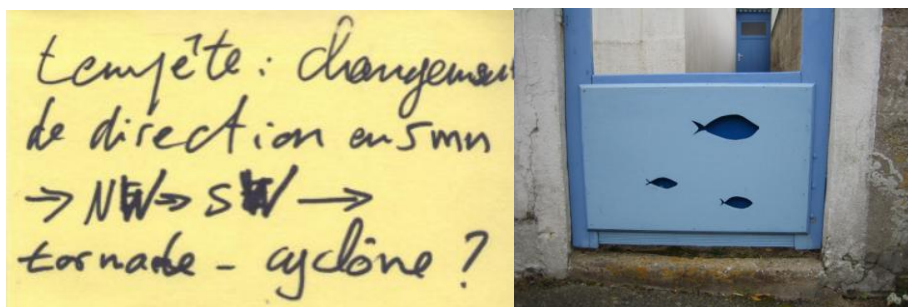 tempête : changement
de direction en 5 mn
→ NW → SW →
tornade - cyclône ?